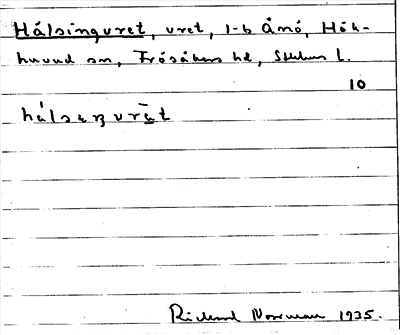 Hälsinguret, uret, 1-b Ånö, Hök-
huvud sn, Frösåkers hd, Sthlms l.
10
hálsaŋurǟt
Rickard Norrman 1935.